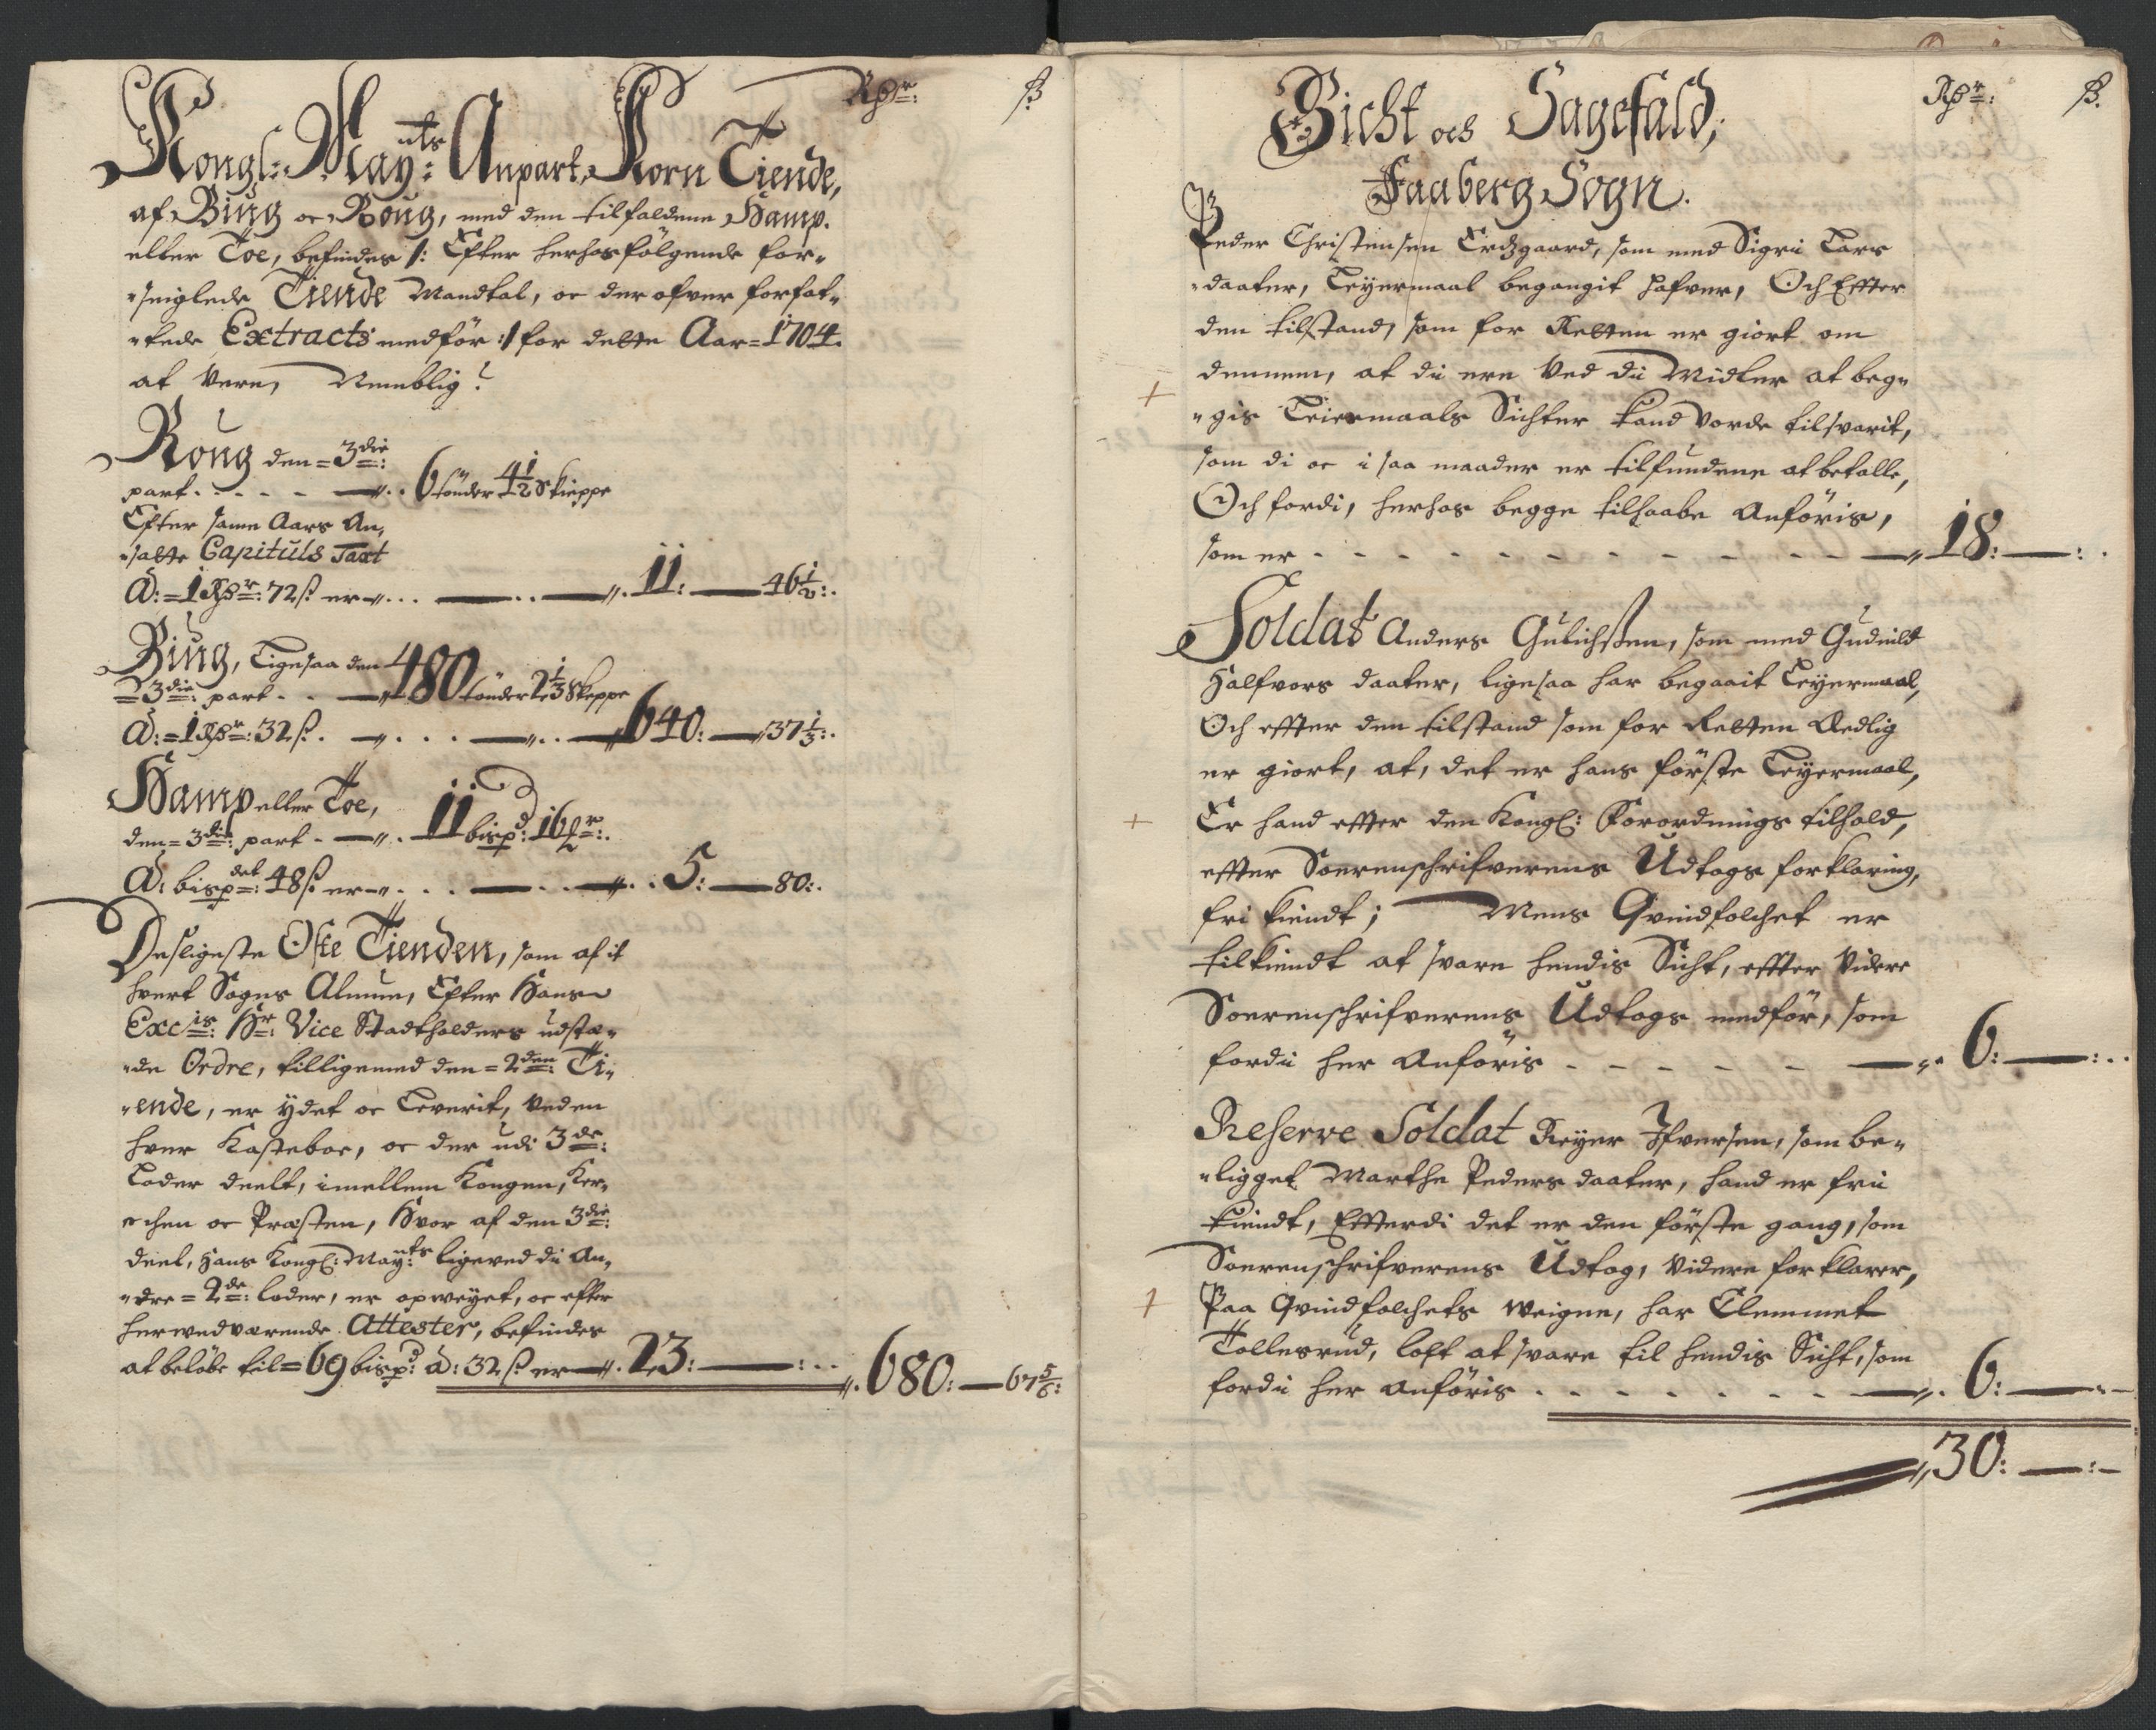 Rdr: ß
Kongl: Mayts: Anpart Korn Tiende,
af Biug oc Roug, med den tilfaldene Hamp.
eller Toe, befindes /: Efter herhos følgende for-
"seiglede Tiende Mandtal, oc der ofver forfat-
"tede Extracts medför :/ for dette Aar = 1704.
at Vere, Nemblig:
Roug den = 3die:
part . . . . 6 tönder 4½ Skieppe
Efter samme Aars An-
"satte Capituls Taxt
â: = 1 Rdr: 72 ß er . . . 11: — 46½:.
Biug, Ligesaa den
= 3die: part . . 480 tönder 2⅓ Skeppe
â: = 1 Rdr: 32 ß . . . . 640: — 37⅓:.
Hamp eller Toe,
den = 3die: part . . 11 bispd: 16 r:.
â: bispdet: 48 ß er . . . 5: — 80:.
Desligeste Oste Tienden, som af it
hvert Sogns Almue, Efter Hans
Excis: Hr: Vice Stadtholders udstæ-
"de Ordre, tilligemed den = 2den: Ti-
"ende, er ydet oc Leverit, Veden
hver Kasteboe, oc der udi 3de:
Loder deelt, imellem Kongen, Ker-
"chen oc Præsten, Hvor af den 3die:
deel, Hans Kongl: Mayts: ligeved di An-
"dre = 2de: loder, er opweyet, oc efter
herwedværende Attester, befindes
at beløbe til = 69 bispd: â: 32 ß er . 23: — :..
680: — 67⅚:
Rdr: ß.
Sicht och Sagefald,
Faaberg Sogn.
Peder Christensen Erdzgaard, som med Sigri Lars
"daater, Leyermaal begangit hafver, Och Effter
den tilstand, som for Retten er giort om
dennem, at di ere Ved di Midler at beg-
"gis Leiermaals Sichter kand vorde tilsvarit,
som di oc i saa maader er tilfundene at betalle,
Och fordi, herhos begge tilhaabe Anföris,
som er - - - - - - - - - - 18: — :.
Soldat Anders Gulichßen, som med Gudnild
Halfvors daater, ligesaa har begaait Leyermaal,
Och effter den tilstand som for Retten Ædlig
er giort, at, det er hans förste Leyermaal,
Er hand effter den Kongl: Forordnings tilhold,
effter Sorenschrifverens Udtogs forklaring,
fri kiendt; Mens Qvindfolchet er
tilkiendt at svare hendis Sicht, effter Videre
Sorenschrifverens Udtogs medför, som
fordi her Anföris - - - - - 6: — :..
Reserve Soldat Reyer Ifversen, som be-
"ligget Marthe Peders daater, hand er fri
kiendt, Effterdi det er den förste gang, som
Sorenschrifverens Udtog, Videre forklarer,
Paa Qvindfolchets Weigne, har Clemmet
Tollesrud, loft at svare til hendis Sicht, som
fordi her Anföris . . . . . . . 6: —
30: — :-